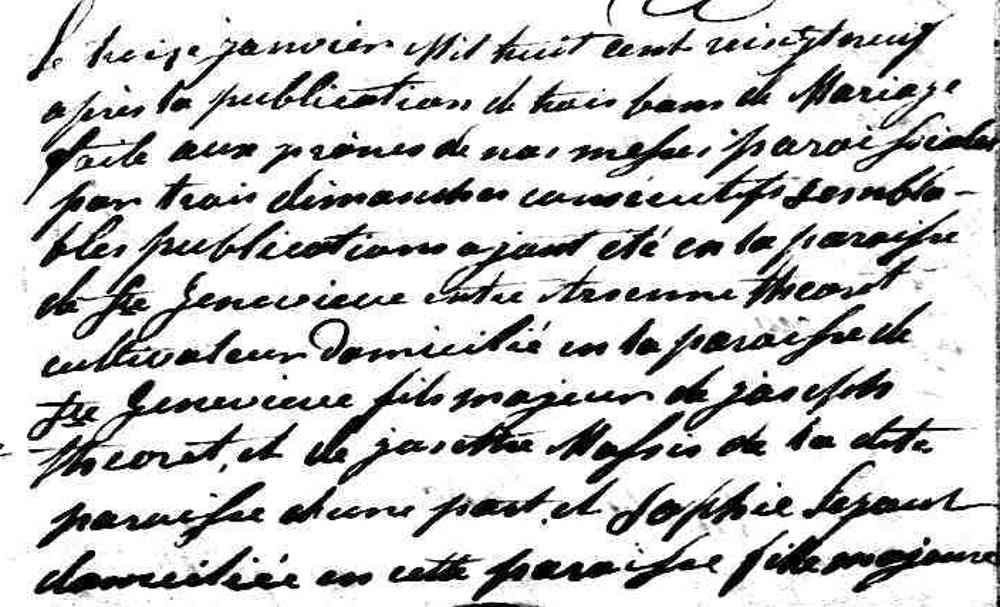 Le treize janvier Mil huit cent vingt neuf
après la publication de trois bans de Mariage
faite aux prônes de nos messes paroissiales
par trois dimanches consécutifs sembla-
bles publications ajant été en la paroisse
de Ste Genevieve entre Arsenne Theoret
cultivateur domicilié en la paroisse de
Ste Genevieve fils majeur de joseph
Theoret, et de josette de la dite
paroisse d'une part, et Sophie
domiciliée en cette paroisse fille majeure